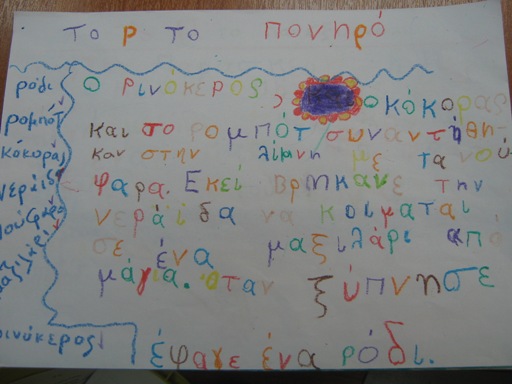 το ρ το πονηρό
ο ρινόκερος ο κόκορας
και το ρομπότ συναντήθη-
καν στην λίμνη με τα νού
φαρα. Εκεί βρήκανε την
νεράϊδα να κοιμαται
σε ένα μαξιλάρι από
μάγια. Όταν ξύπνησε
έφαγε ένα ρόδι.
ρόδι
ρομπότ
κόκορας
νεράιδα
νούφαρο
μαξιλάρι
ρινόκερος